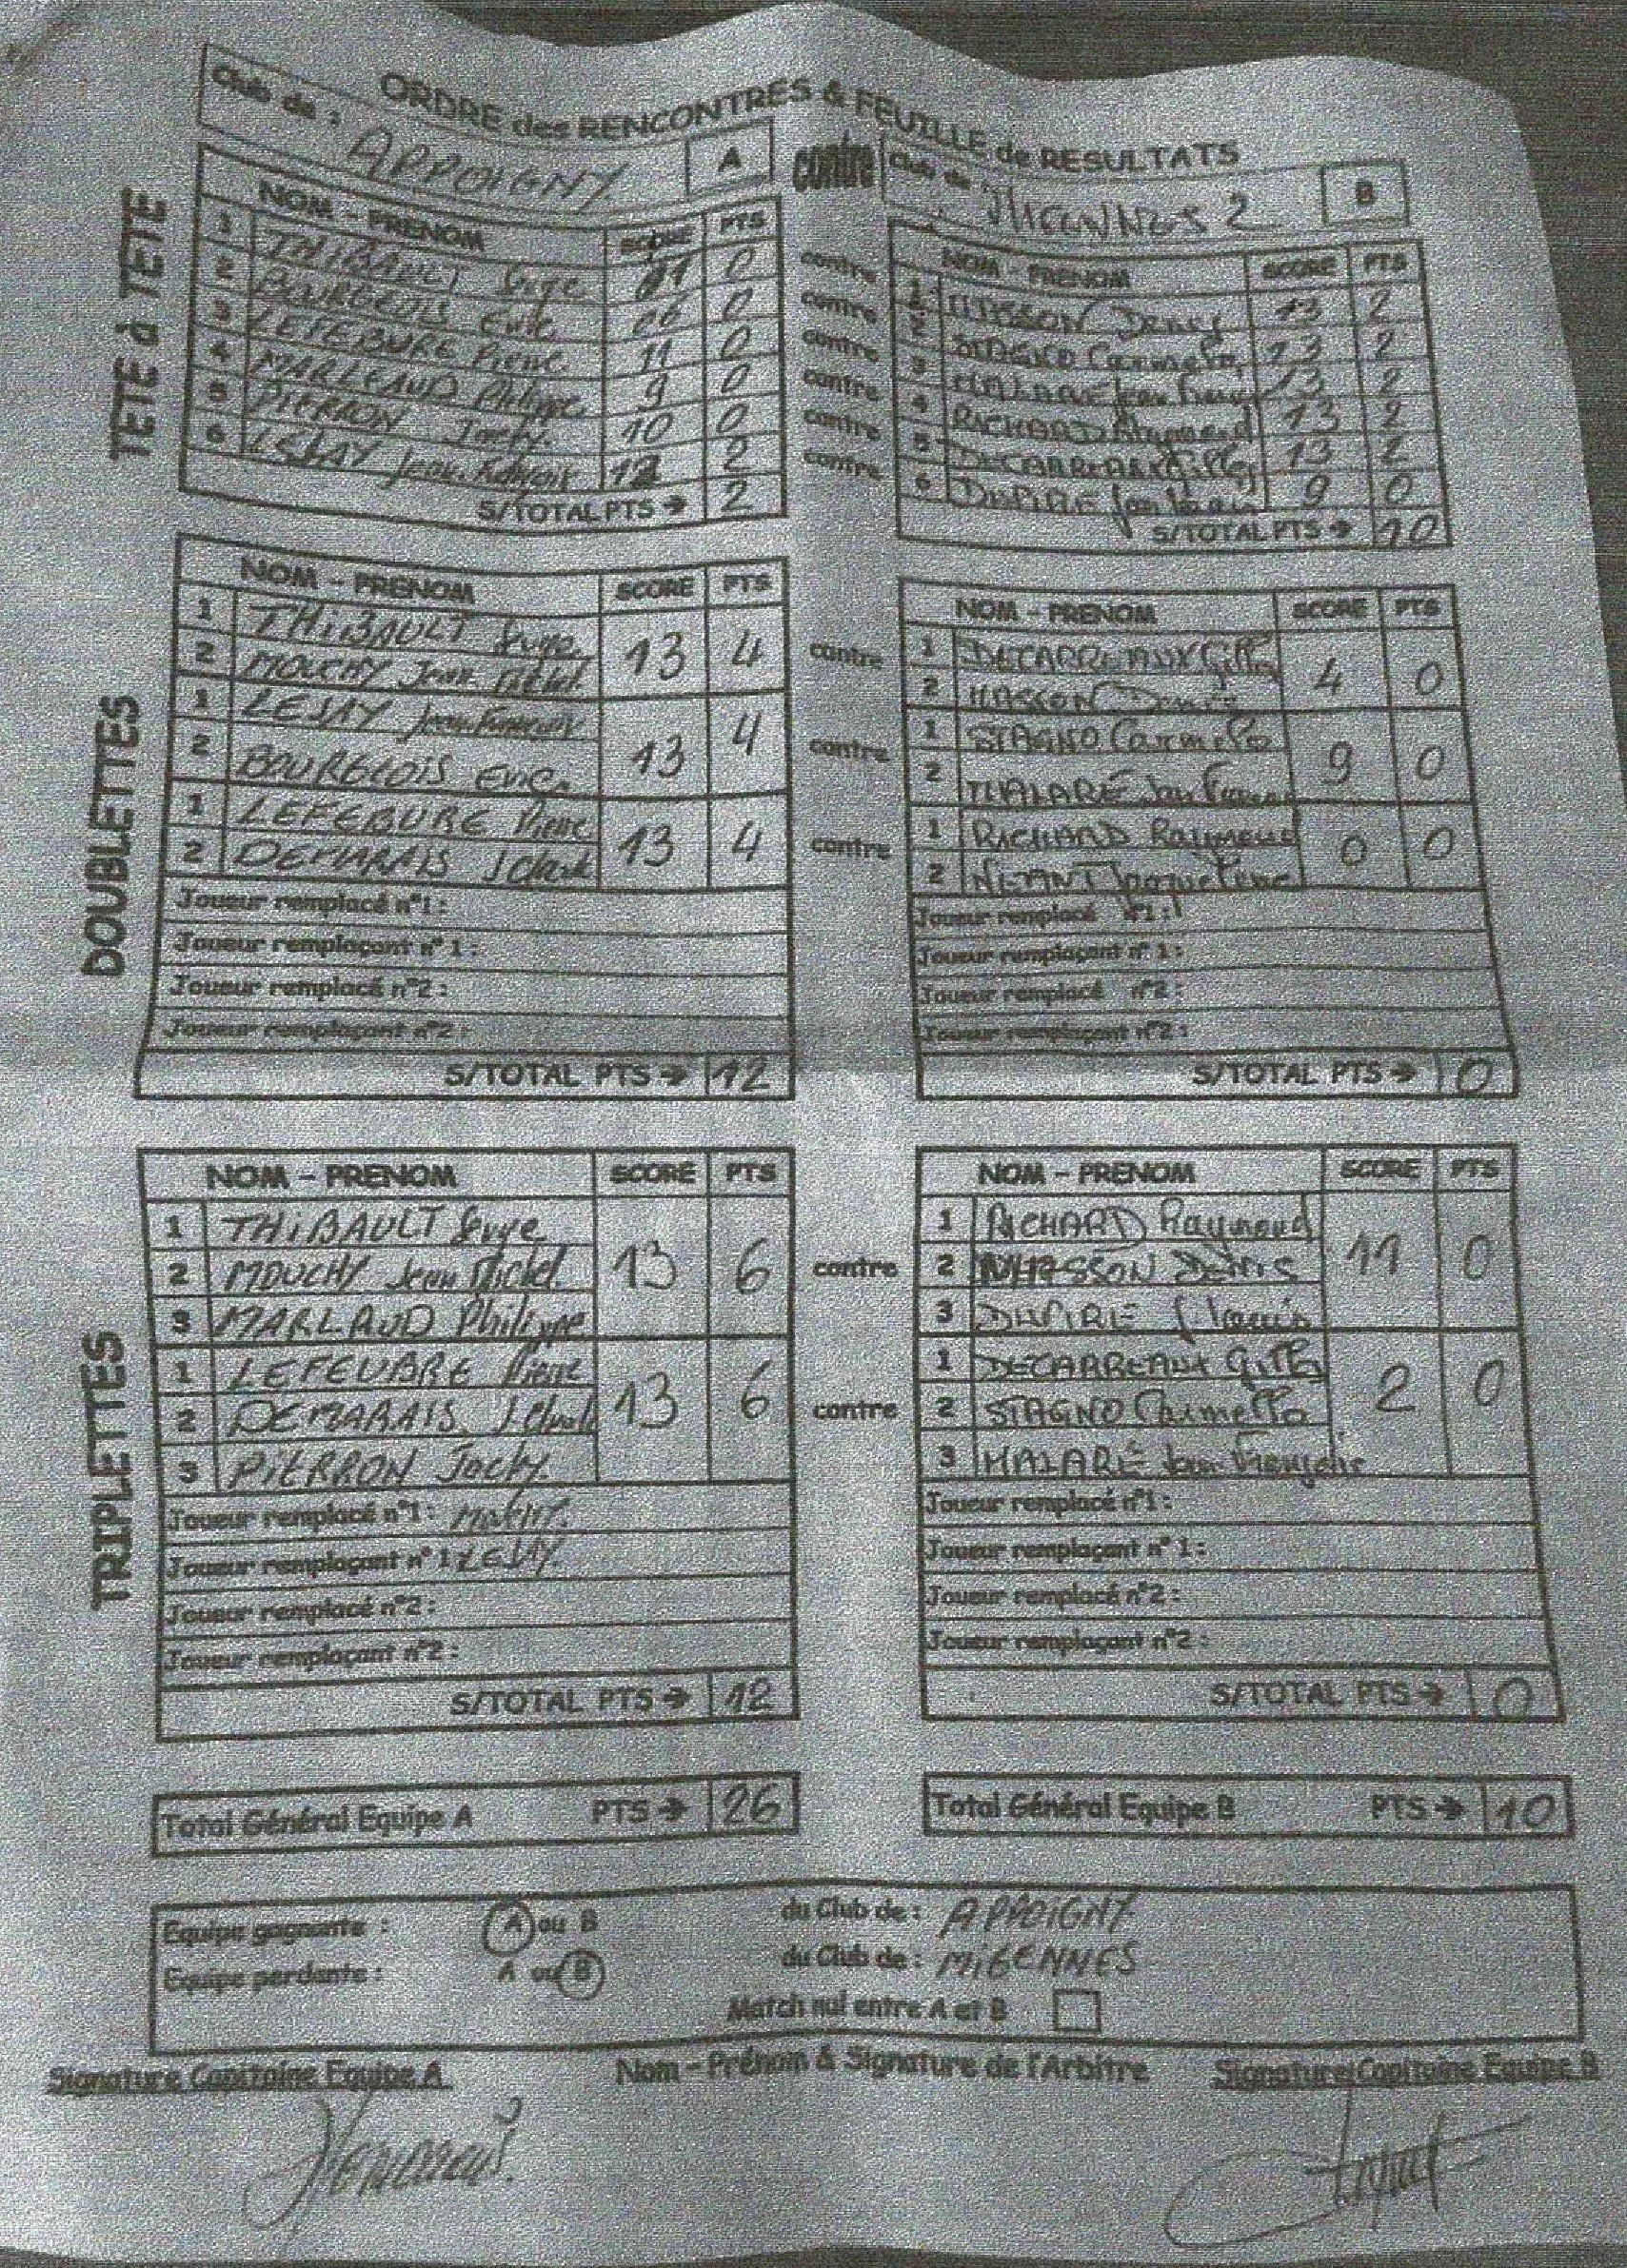 ORDRE des RENCONTRES & FEUILLE de RESULTATS
Club de : APPOIGNY A contre Club de : MIGENNES 2 B
TETE à TETE
NOM - PRENOM SCORE PTS NOM - PRENOM SCORE PTS
1 THIBAULT 0 contre 1 Denis 13 2
2 BOURGEOIS Eric 06 0 contre 2 STAGNO Carmelo 13 2
3 LEFEBURE Pierre 11 0 contre 3 MALARÉ Jean 13 2
4 MARLEAUD Philippe 9 0 contre 4 RICHARD Raymond 13 2
5 PIERRON Jacky 10 0 contre 5 DECARREAUX Gilles 13 2
6 LESAY Jean François 2 contre 6 9 0
S/TOTAL PTS → 2 S/TOTAL PTS → 10
DOUBLETTES
NOM - PRENOM SCORE PTS NOM - PRENOM SCORE PTS
1 THIBAULT 13 4 contre 1 DECARREAUX Gilles 4 0
2 MOUCHY Jean Michel 2 Denis
1 LESAY Jean François 13 4 contre 1 STAGNO Carmelo 9 0
2 BOURGEOIS Eric 2 MALARÉ Jean
1 LEFEBURE Pierre 13 4 contre 1 RICHARD Raymond 0 0
2 DEMARAIS 2 Jacqueline
Joueur remplacé n°1 : Joueur remplacé n°1 :
Joueur remplaçant n° 1 : Joueur remplaçant n° 1 :
Joueur remplacé n°2 : Joueur remplacé n°2 :
Joueur remplaçant n°2 : Joueur remplaçant n°2 :
S/TOTAL PTS → 12 S/TOTAL PTS → 0
TRIPLETTES
NOM - PRENOM SCORE PTS NOM - PRENOM SCORE PTS
1 THIBAULT 13 6 contre 1 RICHARD Raymond 11 0
2 MOUCHY Jean Michel 2 Denis
3 MARLAUD Philippe 3
1 LEFEUBRE Pierre 13 6 contre 1 DECARREAUX Gilles 2 0
2 DEMARAIS 2 STAGNO Carmello
3 PIERRON Jacky 3 MALARÉ Jean François
Joueur remplacé n°1 : Joueur remplacé n°1 :
Joueur remplaçant n° 1 : LESAY Joueur remplaçant n° 1 :
Joueur remplacé n°2 : Joueur remplacé n°2 :
Joueur remplaçant n°2 : Joueur remplaçant n°2 :
S/TOTAL PTS → 12 S/TOTAL PTS → 0
Total Général Equipe A PTS → 26 Total Général Equipe B PTS → 10
Equipe gagnante : A ou B du Club de : APPOIGNY
Equipe perdante : A ou B du Club de : MIGENNES
Match nul entre A et B
Signature Capitaine Equipe A Nom - Prénom & Signature de l'Arbitre Signature Capitaine Equipe B